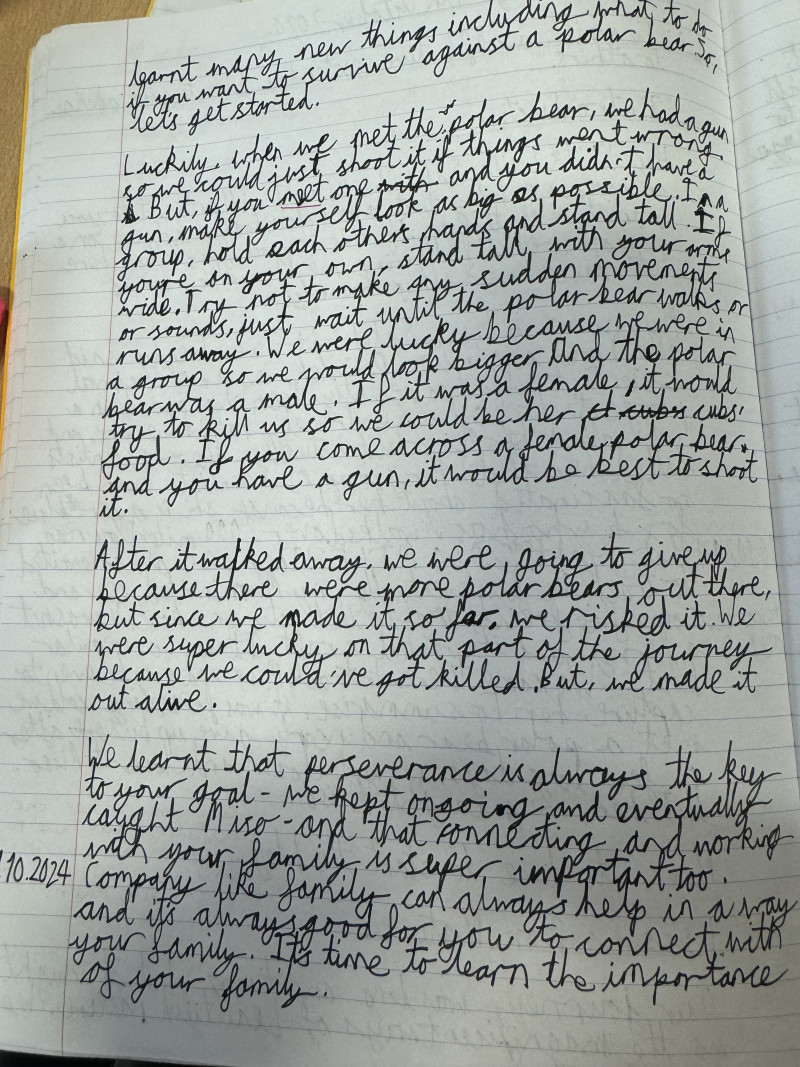 learnt many new things including what to do
if you want to survive against a polar bear. So,
lets get started.
Luckily, when we met the polar bear, we had a gun
so we could just shoot it if things went wrong
But, if you meet one with and you didn't have a
gun, make yourself look as big as possible. In a
group, hold each others hands and stand tall. If
you're on your own, stand tall, with your arms
wide. Try not to make any sudden movements
or sounds, just wait until the polar bear walks or
runs away. We were lucky because we were in
a group so we would look bigger and the polar
bear was a male. If it was a female, it would
try to kill us so we could be her cubs cubs'
food. If you come across a female polar bear,
and you have a gun, it would be best to shoot
it.
After it walked away, we were going to give up
because there were more polar bears out there,
but since we made it so far, we risked it. We
were super lucky on that part of the journey
because we could've got killed. But, we made it
out alive.
We learnt that perseverance is always the key
to your goal - we kept ongoing and eventually
caught Miso - and that connecting and working
with your family is super important too.
10.2024 Company like family can always help in a way
and it's always good for you to connect with
your family. It's time to learn the importance
of your family.